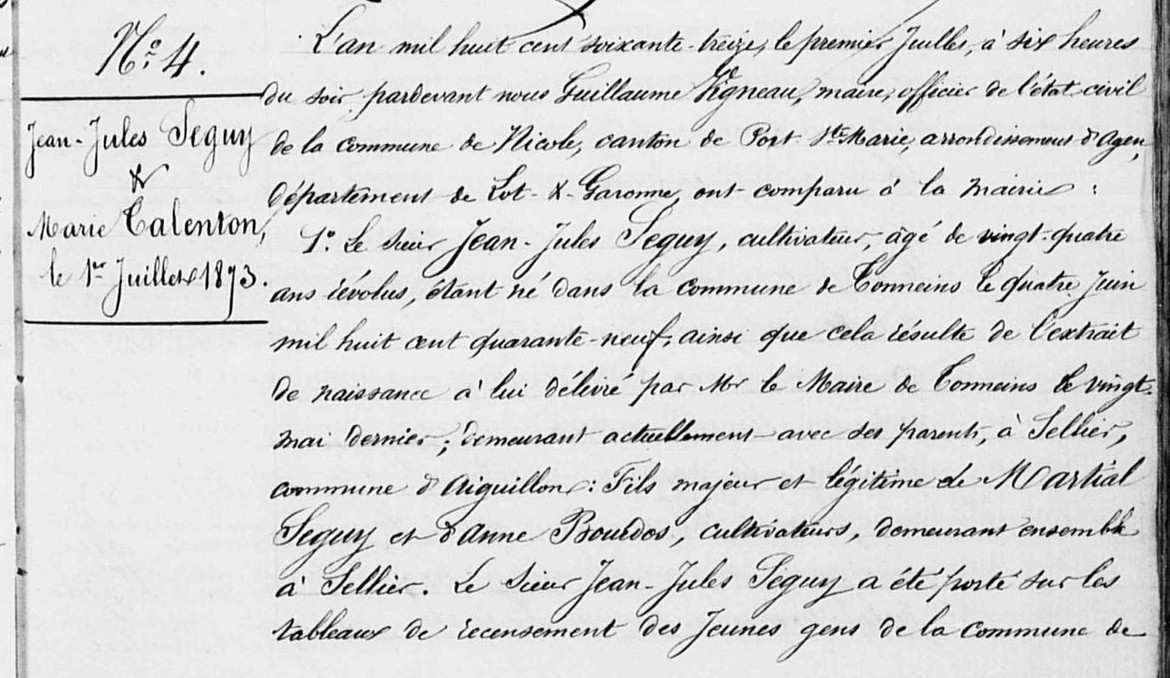 N° 4.
Jean-Jules Seguy
&
Marie Talenton,
le 1er Juillet 1873.
L'an mil huit cent soixante-treize, le premier Juillet, à six heures
du soir pardevant nous Guillaume Vigneau, maire, officier de l'état civil
de la commune de Nicole, canton de Port Ste Marie, arrondissement d'Agen,
département de Lot-&-Garonne, ont comparu à la mairie :
1° Le sieur Jean-Jules Seguy, cultivateur, âgé de vingt-quatre
ans révolus, étant né dans la commune de Tonneins le quatre Juin
mil huit cent quarante-neuf, ainsi que cela résulte de l'extrait
de naissance à lui délivré par Mr le Maire de Tonneins le vingt-
mai dernier ; demeurant actuellement avec ses parents, à Sellier,
commune d'Aiguillon : Fils majeur et légitime de Martial
Seguy et d'Anne Bourdos, cultivateurs, demeurant ensemble
à Sellier. Le sieur Jean-Jules Séguy a été porté sur les
tableaux de recensement des jeunes gens de la commune de